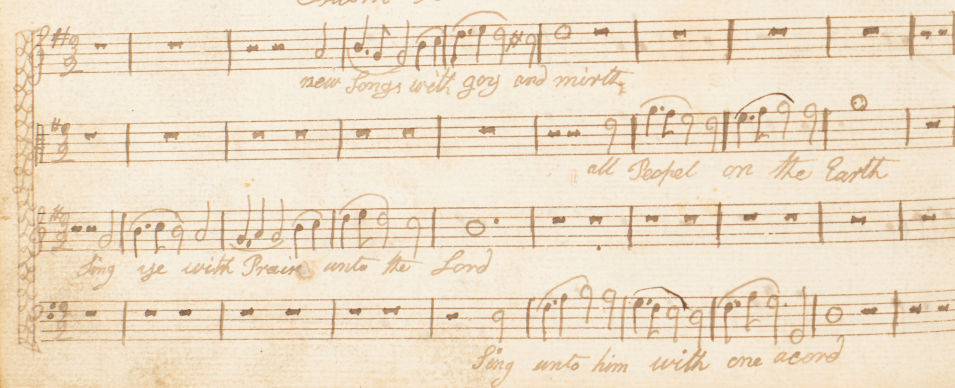 new Songs with goy and mirth
all Peopel on the Earth
Sing ye with Prais unto the Lord
Sing unto him with one acord